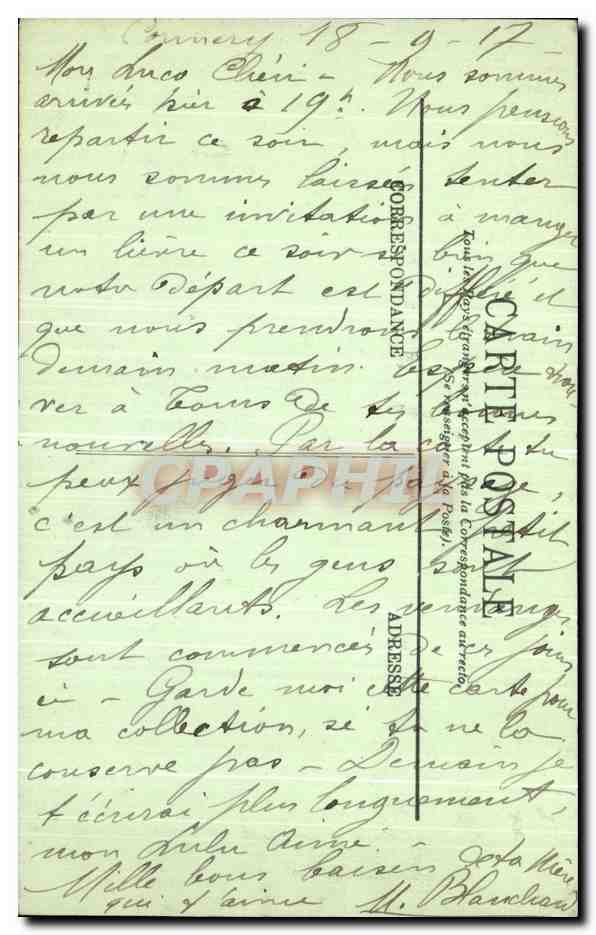 Cormery 18-9-17-
Mon Luco Chéri - Nous sommes
arrivés hier à 19h. Nous pensions
repartir ce soir, mais nous
nous sommes laissés tenter
par une invitation à manger
un lièvre ce soir si bien que
notre départ est différé et
que nous prendrons le train
demain matin. trou-
ver à Tours de tes bonnes
nouvelles. Par la carte tu
peux juger du paysage,
c'est un charmant petit
pays où les gens sont
accueillants. Les vendanges
sont commencées de ces jours
ci - Garde moi cette carte pour
ma collection, si tu ne la
conserve pas - Demain je
t'écrirai plus longuement,
mon Lulu aimé. -
Mille bons baisers de ta Mère
qui t'aime M. Blanchard
CARTE POSTALE
Tous les pays étrangers n'acceptent pas la Correspondance au recto.
(Se renseigner à la Poste).
CORRESPONDANCE
ADRESSE
CPAPHIL